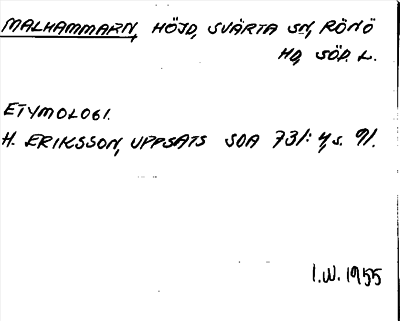 MALHAMMARN, HÖJD, SVÄRTA SN, RÖNÖ
HD, SÖD. L.
ETYMOLOGI.
H. ERIKSSON, UPPSATS SOA 731: 4, s. 91.
I.W. 1955